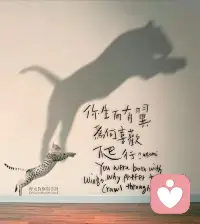 你生而有翼
為何喜歡
爬行
You were born with
wings why prefer to
crawl through